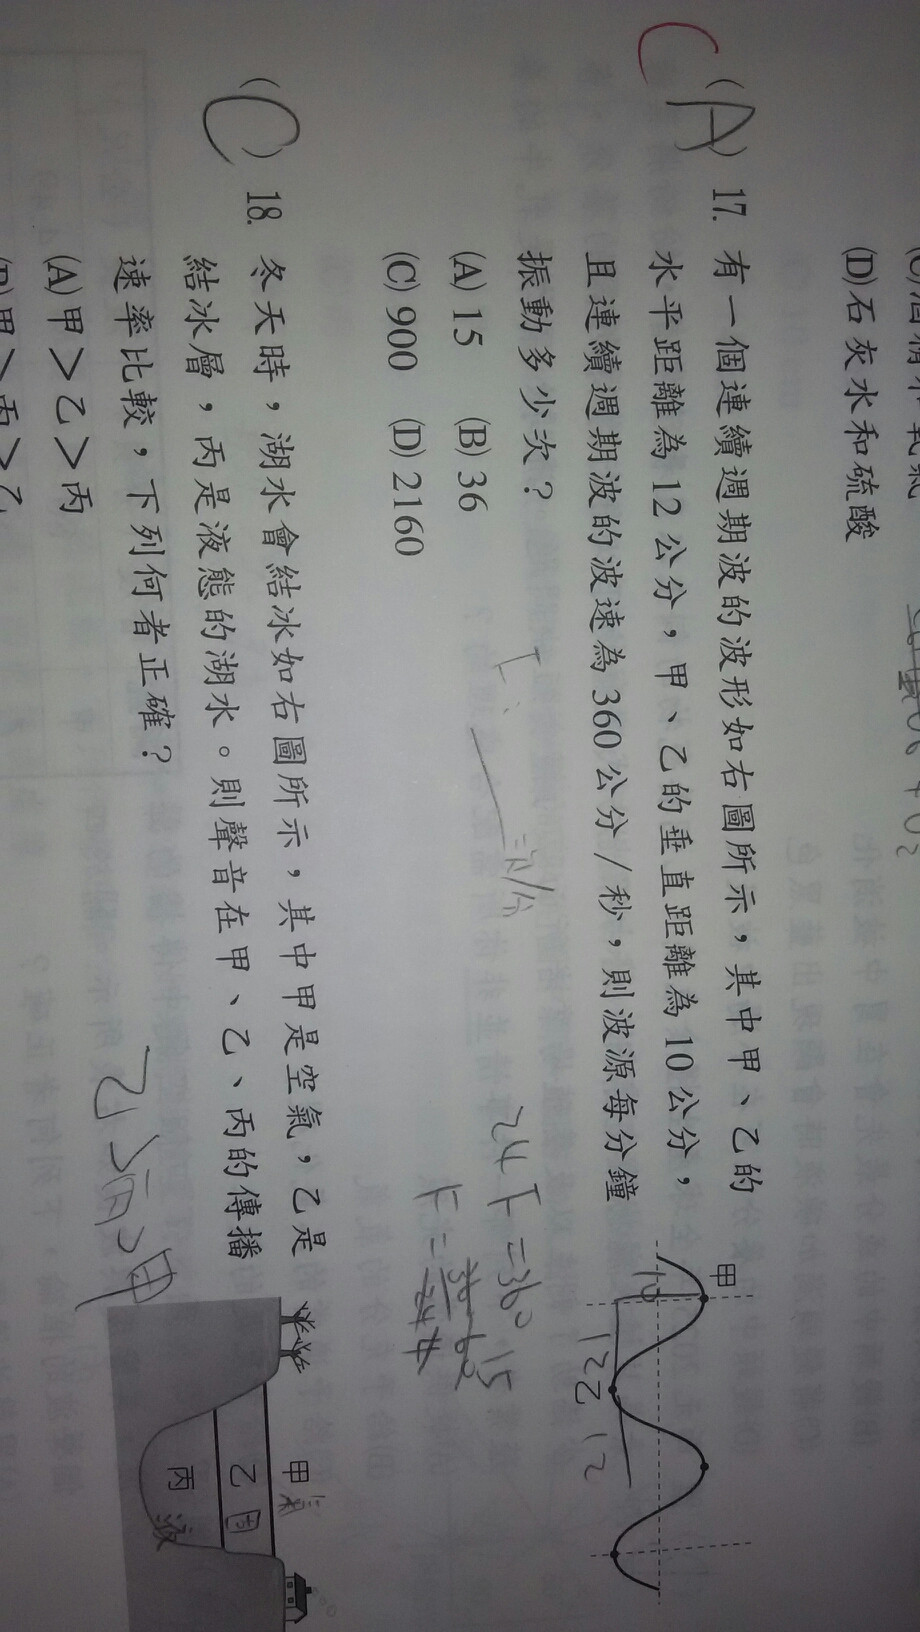 (D)石灰水和硫酸
C
(A) 17. 有一個連續週期波的波形如右圖所示，其中甲、乙的
水平距離為 12 公分，甲、乙的垂直距離為 10 公分，
且連續週期波的波速為 360 公分／秒，則波源每分鐘
振動多少次？
(A) 15 (B) 36
(C) 900 (D) 2160
甲
10
12
12
乙
24 F = 360
F =
15
(C) 18. 冬天時，湖水會結冰如右圖所示，其中甲是空氣，乙是
結冰層，丙是液態的湖水。則聲音在甲、乙、丙的傳播
速率比較，下列何者正確？
乙>丙>甲
甲 氣
乙 固
丙 液
(A) 甲＞乙＞丙
(B) 甲＞丙＞乙